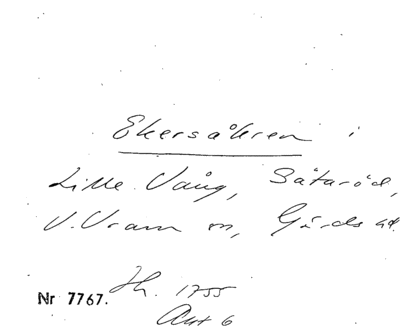 Ekersåkren i
Lille Vång, Såtaröd,
V. Vram sn, Gärds hd.
Nr 7767. Jh. 1755
Akt 6